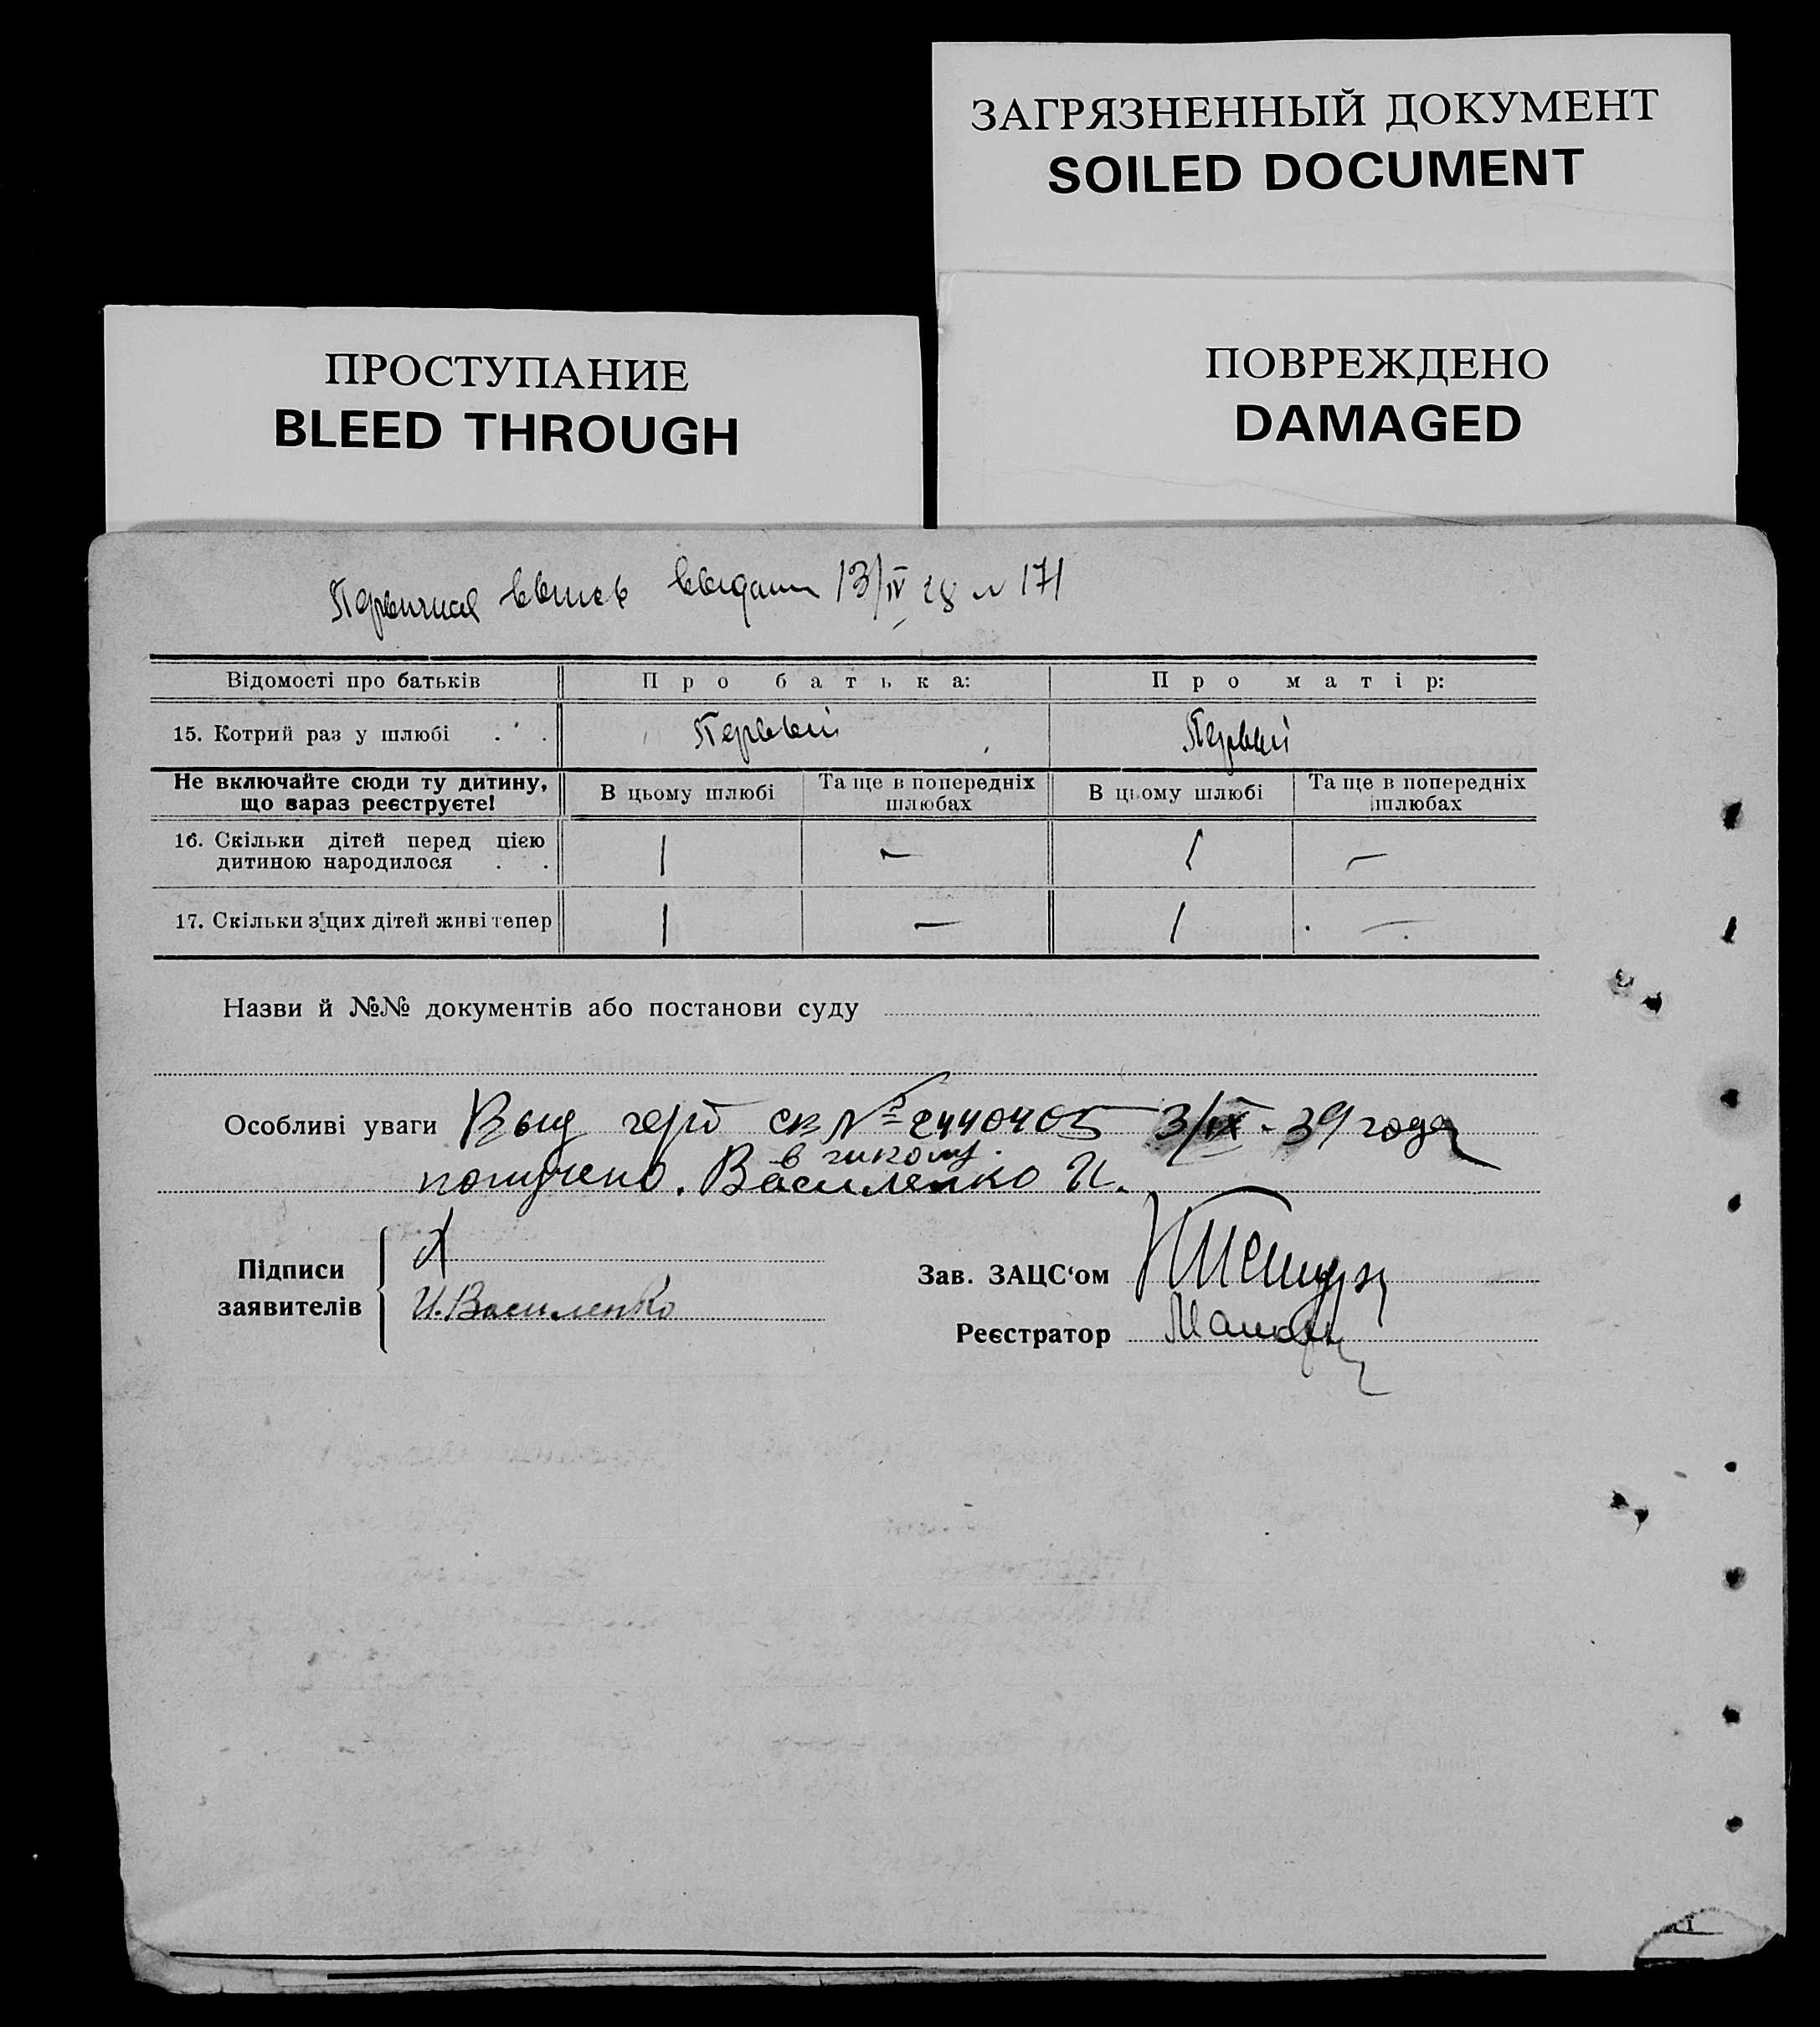 ЗАГРЯЗНЕННЫЙ ДОКУМЕНТ
SOILED DOCUMENT
ПРОСТУПАНИЕ
BLEED THROUGH
ПОВРЕЖДЕНО
DAMAGED
Первичная выпись выдана 13/IV 28 № 171
Відомості про батьків Про батька: Про матір:
15. Котрий раз у шлюбі . . Первый Первый
Не включайте сюди ту дитину, що зараз реєструєте! В цьому шлюбі Та ще в попередніх шлюбах В цьому шлюбі Та ще в попередніх шлюбах
16. Скільки дітей перед цією дитиною народилося . . 1 — 1 —
17. Скільки з цих дітей живі тепер 1 — 1 —
Назви й №№ документів або постанови суду
Особливі уваги Выд СК № 2440405 3/IX - 39 года
получено. Василенко И.
Підписи заявителів
И. Василенко
Зав. ЗАЦС‘ом
Реєстратор